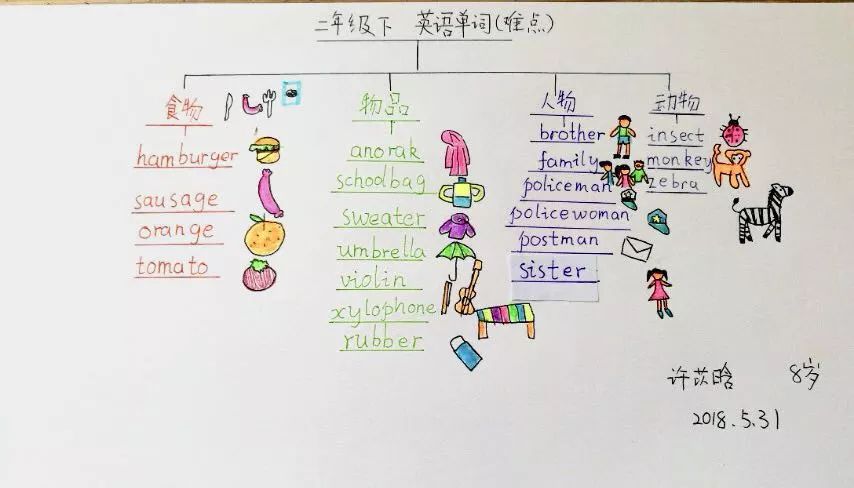 二年级下 英语单词(难点)
食物
hamburger
sausage
orange
tomato
物品
anorak
schoolbag
sweater
umbrella
violin
xylophone
rubber
人物
brother
family
policeman
policewoman
postman
sister
动物
insect
monkey
zebra
许苡晗 8岁
2018.5.31